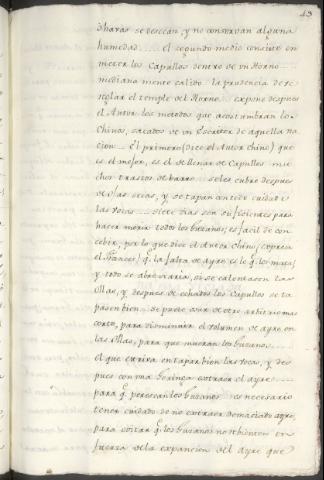 43
dharas se desecan, y no conservan alguna
humedad .... el segundo medio consiste en
meter los Capullos dentro de un Horno
mediana mente calido la prudencia de
el temple del Horno expone despues
el Autor los metodos que acostumbran los
Chinos, sacados de un Escritor de aquella na
cion El primero (dice el Autor chino) que
es el mejor, es el de llenar de Capullos mu
chos trastos de barro seles cubre despues
de ojas secas, y se tapan con todo cuidado
las voias siete dias son suficientes para
hacer morir todos los busanos; es facil de con
cebir, por lo que dice el Autor chino, expresa
el frances) q.e la falta de ayre es lo q.e los mata;
y todo se abreviaria, si se calentasen las
Ollas, y despues de echados los Capullos se ta
pasen bien se puede usar de otro arbitrio mas
corto, para disminuir el volumen de ayre en
las Ollas, para que mueran los busanos
el que estriva en tapar bien las vocas, y des
pues con una Geringa extraer el ayre
para q.e perescan los busanos es necesario
tener cuidado de no extraer demasiado ayre,
para evitar q.e los busanos no rebienten en
fuerza dela expancion del ayre que